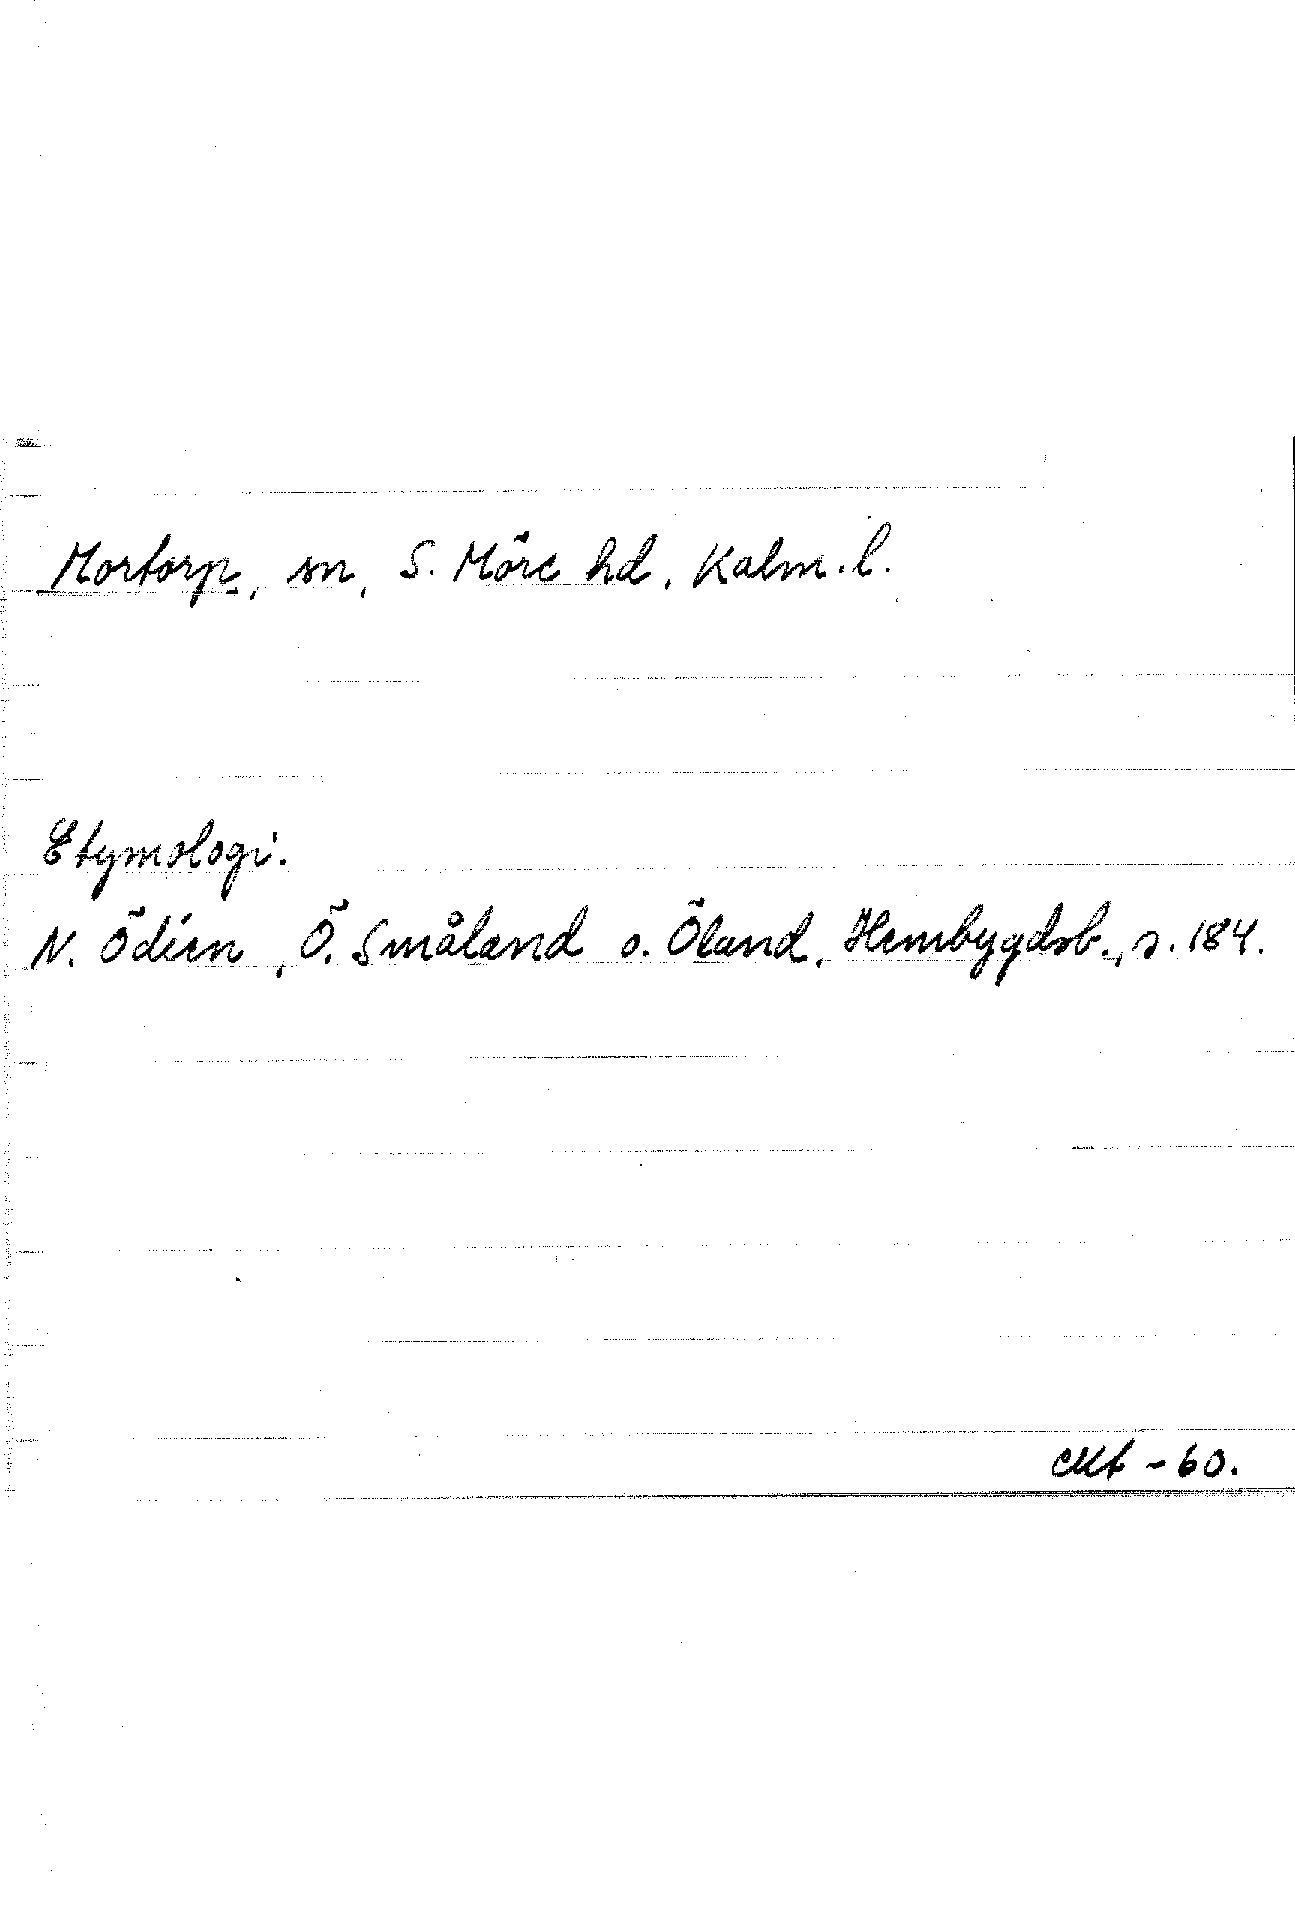 Mortorp, sn, S. Möre hd, Kalm. l.
Etymologi.
N. Ödéen, Ö. Småland o. Öland, Hembygdsb., s. 184.
-60.